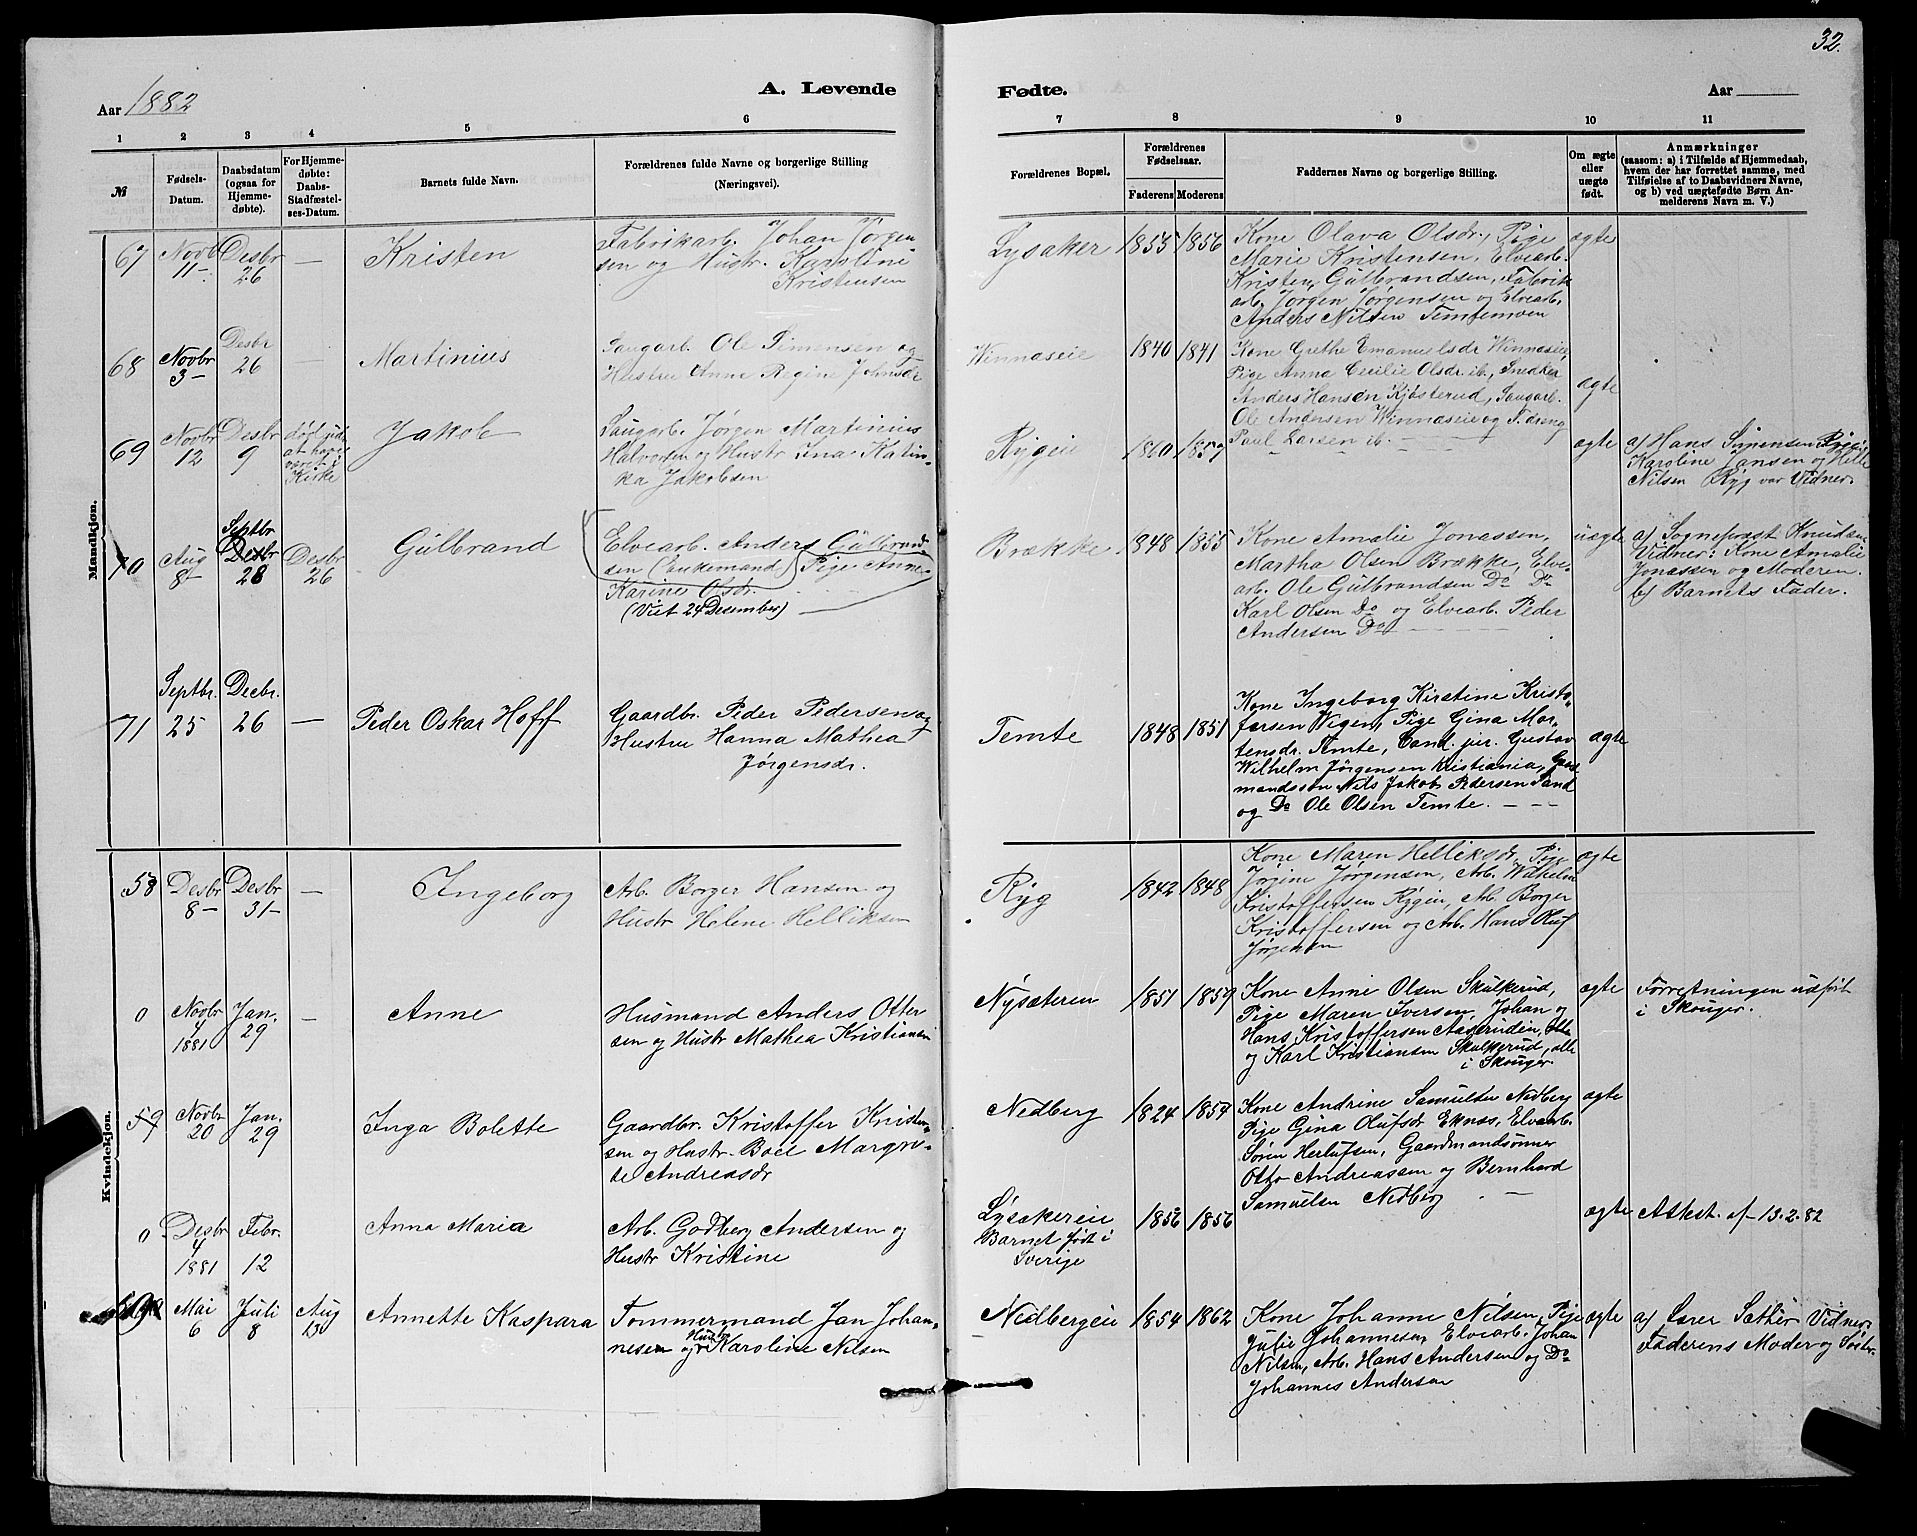 32.
A. Levende
Fødte.
Aar 1882
Aar
1 2 3 4 5 6 7 8 9 10 11
№
Fødsels-
Datum.
Daabsdatum
(ogsaa for
Hjemme-
døbte).
For Hjemme-
døbte:
Daabs-
Stadfæstel-
ses-Datum.
Barnets fulde Navn.
Forældrenes fulde Navne og borgerlige Stilling
(Næringsvei).
Forældrenes Bopæl.
Forældrenes
Fødselsaar.
Faderens
Moderens
Faddernes Navne og borgerlige Stilling.
Om ægte
eller
uægte
født.
Anmærkninger
(saasom: a) i Tilfælde af Hjemmedaab,
hvem der har forrettet samme, med
Tilføielse af to Daabsvidners Navne,
og b) ved uægtefødte Børn An-
melderens Navn m. V.)
Mandkjøn.
67
Novb
11-
Desbr
26
—
Kristen
Fabrikarb. Johan Jørgen-
sen og Hustr. Karoline
Kristensen
Lysaker
1855
1856
Kone Olava Olsdr, Pige
Marie Kristensen, Elvearb.
Kristen Gulbrandsen, Fabrik
arb. Jørgen Jørgensen og Elvearb.
Anders Nilsen Temtemoen
ægte
68
Novbr
3-
Desbr
26
—
Martinius
Saugarb. Ole Simensen og
Hustru Anne Regine Johnsdr
Winnaseie
1840
1841
Kone Grethe Emanuelsdr Winnaseie,
Pige Anna Cecilie Olsdr. ib., Snedker
Anders Hansen Kjøsterud, Saugarb.
Ole Andersen Winnaseie og
Paul Larsen ib.
ægte
69
Novbr
12
Desbr
9
at have
været i
Kirke
Jakob
Saugarb. Jørgen Martinius
Halvorsen og Hustr Ina Katin-
ka Jakobsen
Rygeie
1860
1857
ægte
a) Hans Simensen Rygeie,
Karoline Jansen og Helle
Nilsen Ryg var Vidner.
70
Aug
8-
Septbr
Desbr
28
Desbr
26
Gulbrand
Elvearb. Anders Gulbrand-
sen (Enkemand) Pige Anne
Karine Olsdr.
(Viet 24 Desember)
Brække
1848
1855
Kone Amalie Jonassen,
Martha Olsen Brække, Elve-
arb. Ole Gulbrandsen Do Do
Karl Olsen Do og Elvearb. Peder
Andersen Do
uægte
a) Sogneprest Knudsen
Vidner: Kone Amalie
Jonassen og Moderen.
b) Barnets Fader.
71
Septbr.
25
Decbr.
26
—
Peder Oskar Hoff
Gaardbr. Peder Pedersen og
Hustru Hanna Mathea
Jørgensdr.
Temte
1848
1851
Kone Ingeborg Kirstine Kristo-
fersen Wigen, Pige Gina Mor-
tensdr. Temte, Cand. jur. Gustav
Wilhelm Jørgensen Kristiania, Gaard
mandssøn Nils Jakob Pedersen Sand
og Do Ole Olsen Temte.
ægte
Kvindekjøn.
58
Desbr
8-
Desbr
31-
—
Ingeborg
Arb. Borger Hansen og
Hustr Helene Helliksen
Ryg
1842
1848
Kone Maren Helliksdr, Pige
Jørgine Jørgensen, Arb. Wilhelm
Kristoffersen Rygeie, Arb. Borger
Kristoffersen og Arb. Hans Oluf
Jørgensen
ægte
0
Novbr
4
1881
Jan.
29
—
Anne
Husmand Anders Otter
sen og Hustr Mathea Kristiansen
Nysæteren
1851
1859
Kone Anne Olsen Skulkerud,
Pige Maren Iversen, Johan og
Hans Kristoffersen Aaserudeie,
og Karl Kristiansen Skulkerud, alle
i Skouger.
ægte
Forretningen udført
i Skouger.
59
Novbr
20
Jan.
29
Inga Bolette
Gaardbr. Kristoffer Knister-
sen og Hustr. Boel Margre-
te Andreasdr
Nedberg
1824
1854
Kone Andrine Samuelsen Nedberg
Pige Gina Olufsdr Eknæs, Elvearb.
Søren Herlufsen, Gaardmandsønner
Otto Andreassen og Bernhard
Samuelsen Nedberg
ægte
0
Desbr
4
1881
Febr.
12
Anna Maria
Arb. Godberg Andersen og
Hustr Kristine
Lysakereie
Barnet født i
Sverige
1856
1856
ægte
Attest. af 13-2-82
Mai
6
Juli
8
Aug
13
Annette Kaspara
Tømmermand Jan Johan-
nesen og Hustru Karoline Nilsen
Nedbergeie
1854
1862
Kone Johanne Nilsen, Pige
Julie Johannesen, Elvearb. Johan
Nilsen, Arb. Hans Andersen og Do
Johannes Andersen
ægte
a) Lærer Sæther Vidner.
Faderens Moder og Søster.